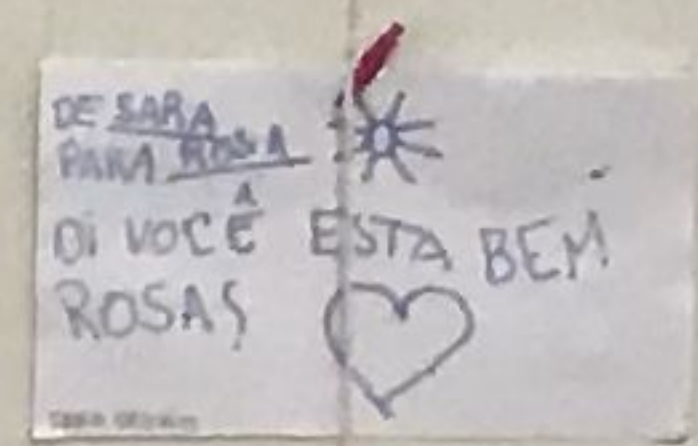 DE SARA
PARA ROSA
OI VOCÊ ESTA BEM
ROSA?